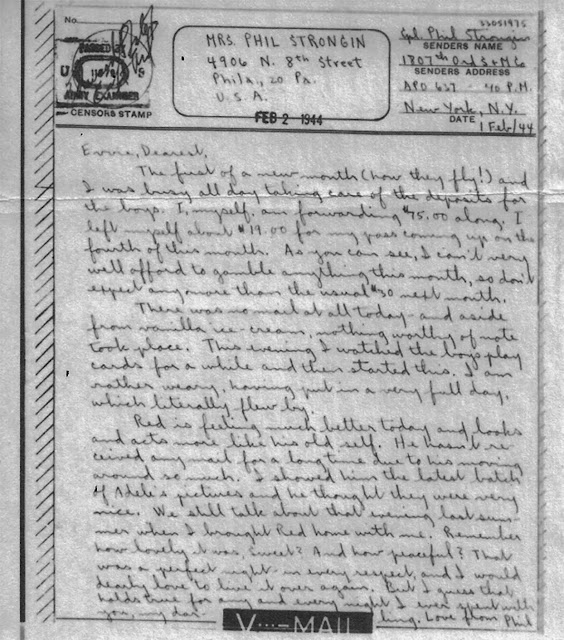 No.
33051975
PASSED BY
U S
ARMY EXAMINER
CENSORS STAMP
MRS. PHIL STRONGIN
4906 N. 8th Street
Phila., 20 Pa.
U. S. A.
FEB 2 1944
Cpl. Phil Strongin
SENDERS NAME
1807th Ord S+M Co
SENDERS ADDRESS
APO 637 40 P.M.
New York, N.Y.
DATE
1 Feb/44
Evvie, Dearest,
The first of a new month (how they fly!) and
I was busy all day taking care of the deposits for
the boys. I, myself, am forwarding $75.00 along. I
left myself about $19.00 for my pass coming up on the
fourth of this month. As you can see, I can't very
well afford to gamble anything this month, so don't
expect anymore than the usual $30 next month.
There was no mail at all today - and aside
from vanilla ice-cream, nothing worthy of note
took place. This evening I watched the boys play
cards for a while and then started this. I am
rather weary, having put in a very full day,
which literally flew by.
Red is feeling much better today and looks
and acts more like his old self. He hasn't re-
ceived any mail for a long time due to his moving
around so much. I showed him the latest batch
of Adele's pictures and he thought they were very
nice. We still talk about that evening last sum-
mer when I brought Red home with me. Remember
how lovely it was, Sweet? And how peaceful? That
was a perfect night - in every respect, and I would
dearly love to live it over again. But I guess that
holds true for any and every night I ever spent with
you, my dar- ling. Love from Phil
V···-MAIL